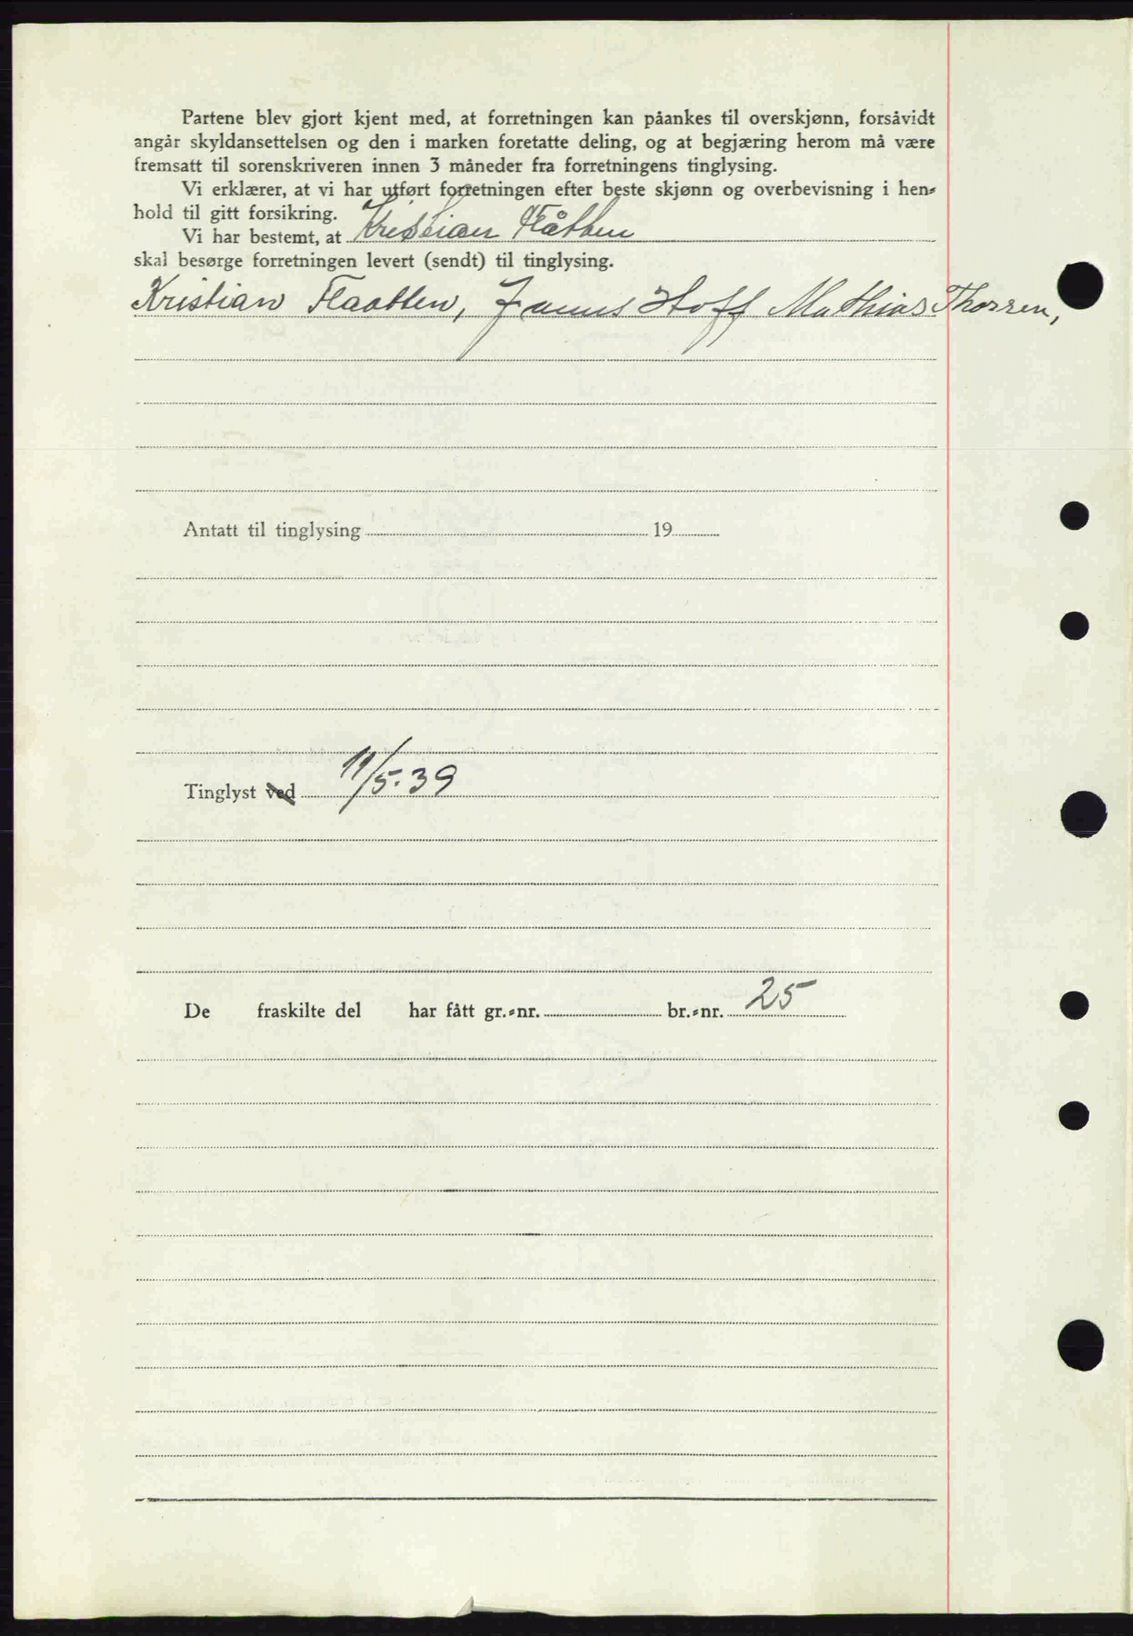 Partene blev gjort kjent med, at forretningen kan påankes til overskjønn, forsåvidt
angår skyldansettelsen og den i marken foretatte deling, og at begjæring herom må være
fremsatt til sorenskriveren innen 3 måneder fra forretningens tinglysing.
Vi erklærer, at vi har utført forretningen efter beste skjønn og overbevisning i hen-
hold til gitt forsikring.
Vi har bestemt, at Kristian Flåtten
skal besørge forretningen levert (sendt) til tinglysing.
Kristian Flaatten, Hoff Mathias Thorsen,
Antatt til tinglysing 19
Tinglyst ved 11/5.39
De fraskilte del har fått gr.-nr. br.-nr. 25